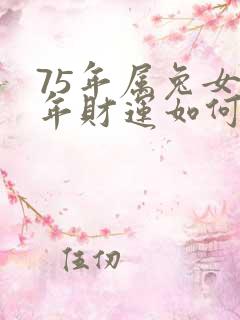 75年属兔女
年财运如何
伍仞